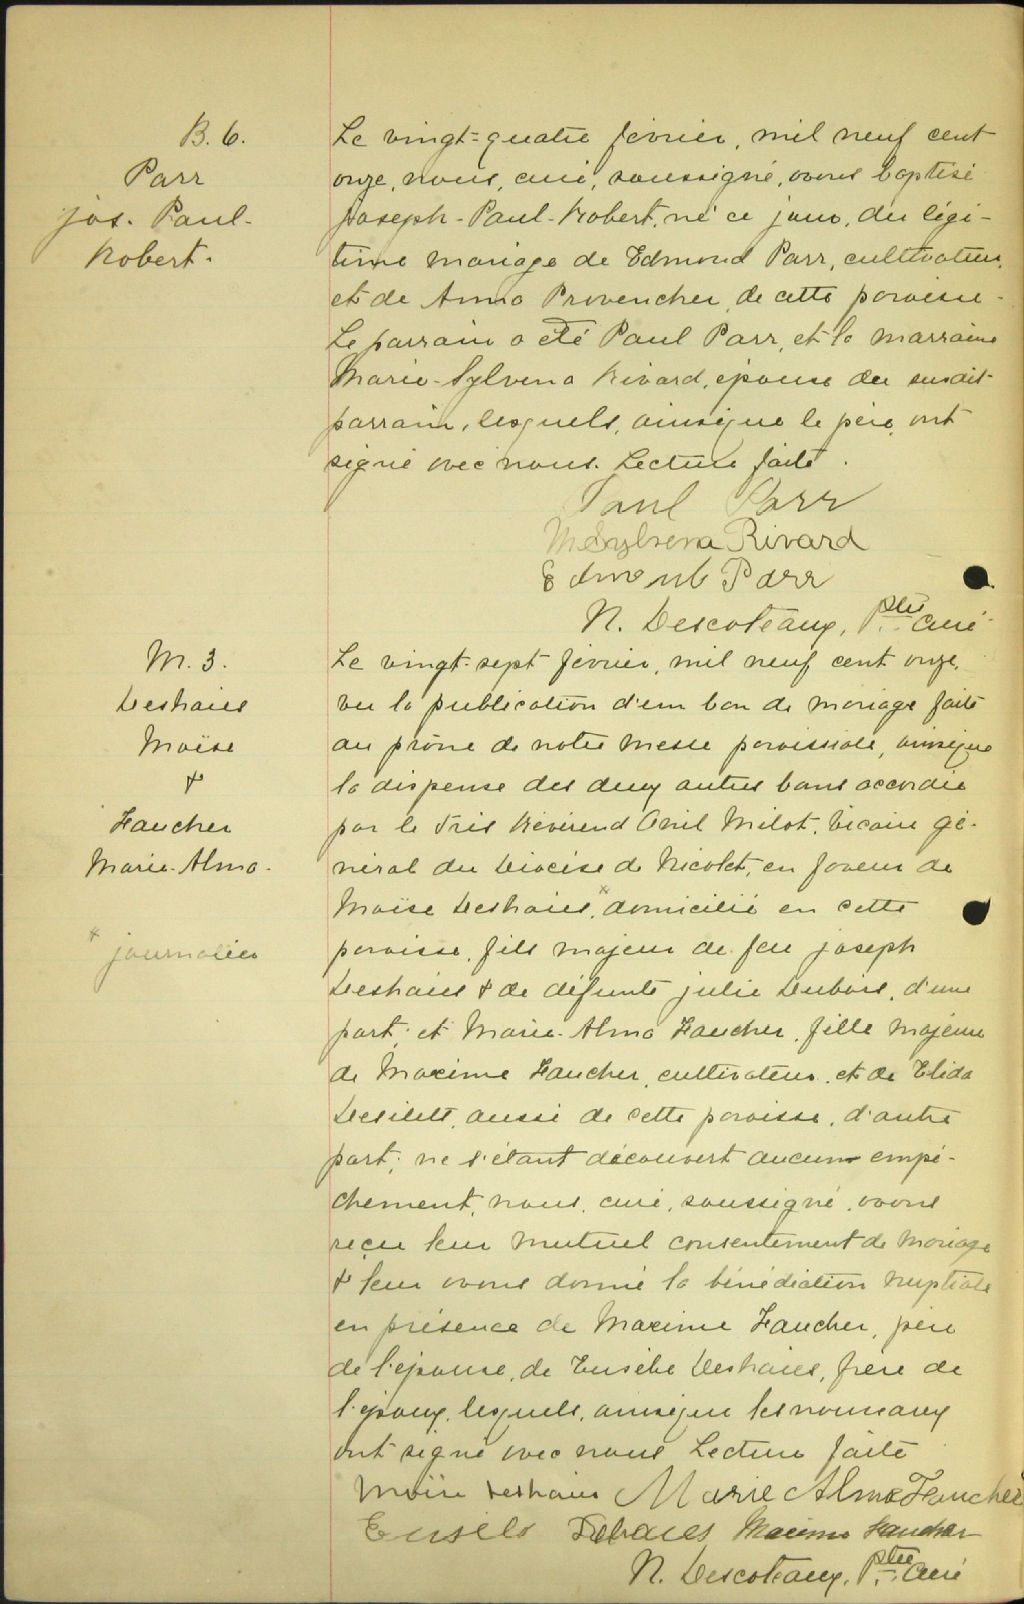 B. 6.
Parr
Jos. Paul-
Robert.
Le vingt-quatre février, mil neuf cent
onze, nous, curé, soussigné, avons baptisé
Joseph-Paul-Robert, né ce jour, du légi-
time mariage de Edmond Parr, cultivateur,
et de Anna Provencher, de cette paroisse.
Le parrain a été Paul Parr, et la marraine
Marie-Sylvena Rivard, épouse du susdit
parrain, lesquels, ainsique le père, ont
signé avec nous. Lecture faite.
Paul Parr
M Sylvena Rivard
Edmond Parr
N. Descoteaux, Ptre Curé
M. 3.
Deshaies
Moïse
&
Faucher
Marie-Alma.
* journalier
Le vingt-sept février, mil neuf cent onze,
vu la publication d'un ban de mariage faite
au prône de notre messe paroissiale, ainsique
la dispense des deux autres bans accordée
par le Très Révérend Onil Milot, Vicaire gé-
néral du Diocèse de Nicolet, en faveur de
Moïse Deshaies,* domicilié en cette
paroisse, fils majeur de feu Joseph
Deshaies & de défunte Julie Dubois, d'une
part; et Marie-Alma Faucher, fille majeure
de Maxime Faucher, cultivateur, et de Elida
Desilets, aussi de cette paroisse, d'autre
part; ne s'étant découvert aucun empê-
chement, nous, curé, soussigné, avons
reçu leur mutuel consentement de mariage
& leur avons donné la bénédiction nuptiale
en présence de Maxime Faucher, père
de l'épouse, de Eusèbe Deshaies, frère de
l'époux, lesquels, ainsique les nouveaux
ont signé avec nous Lecture faite
Moïse Deshaies Marie Alma Faucher
Eusèbe Dehaies Maxime Faucher
N. Descoteaux, Ptre Curé